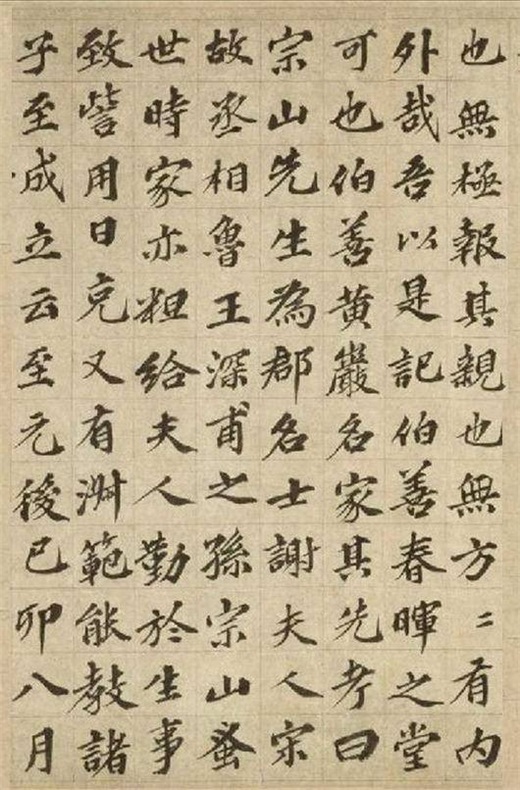 也無極報其親也無方〻有内
外哉吾以是記伯善春暉之堂
可也伯善黄巖名家其先考曰
宗山先生為郡名士謝夫人宋
故丞相魯王深甫之孫宗山蚤
世時家亦粗給夫人勤於生事
致訾用日克又有淑範能教諸
子至成立云至元後己卯八月